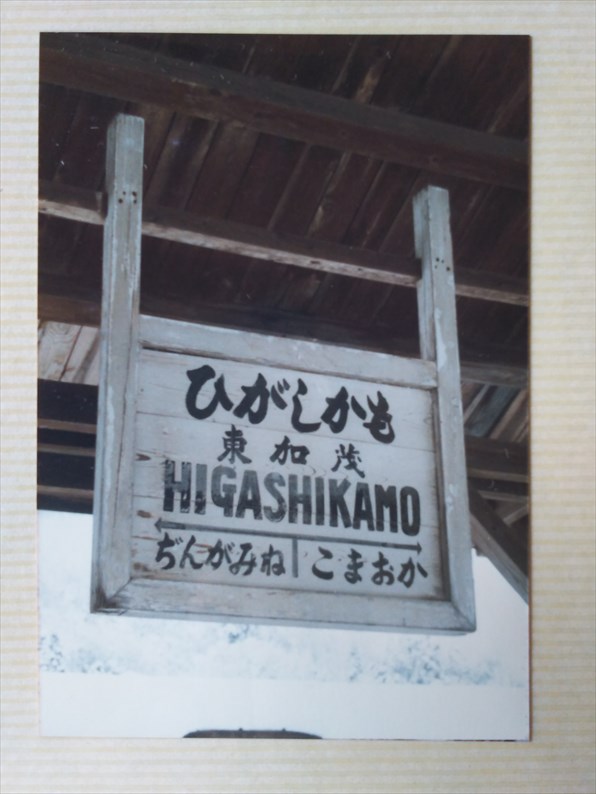 ひがしかも
東加茂
HIGASHIKAMO
ぢんがみね こまおか